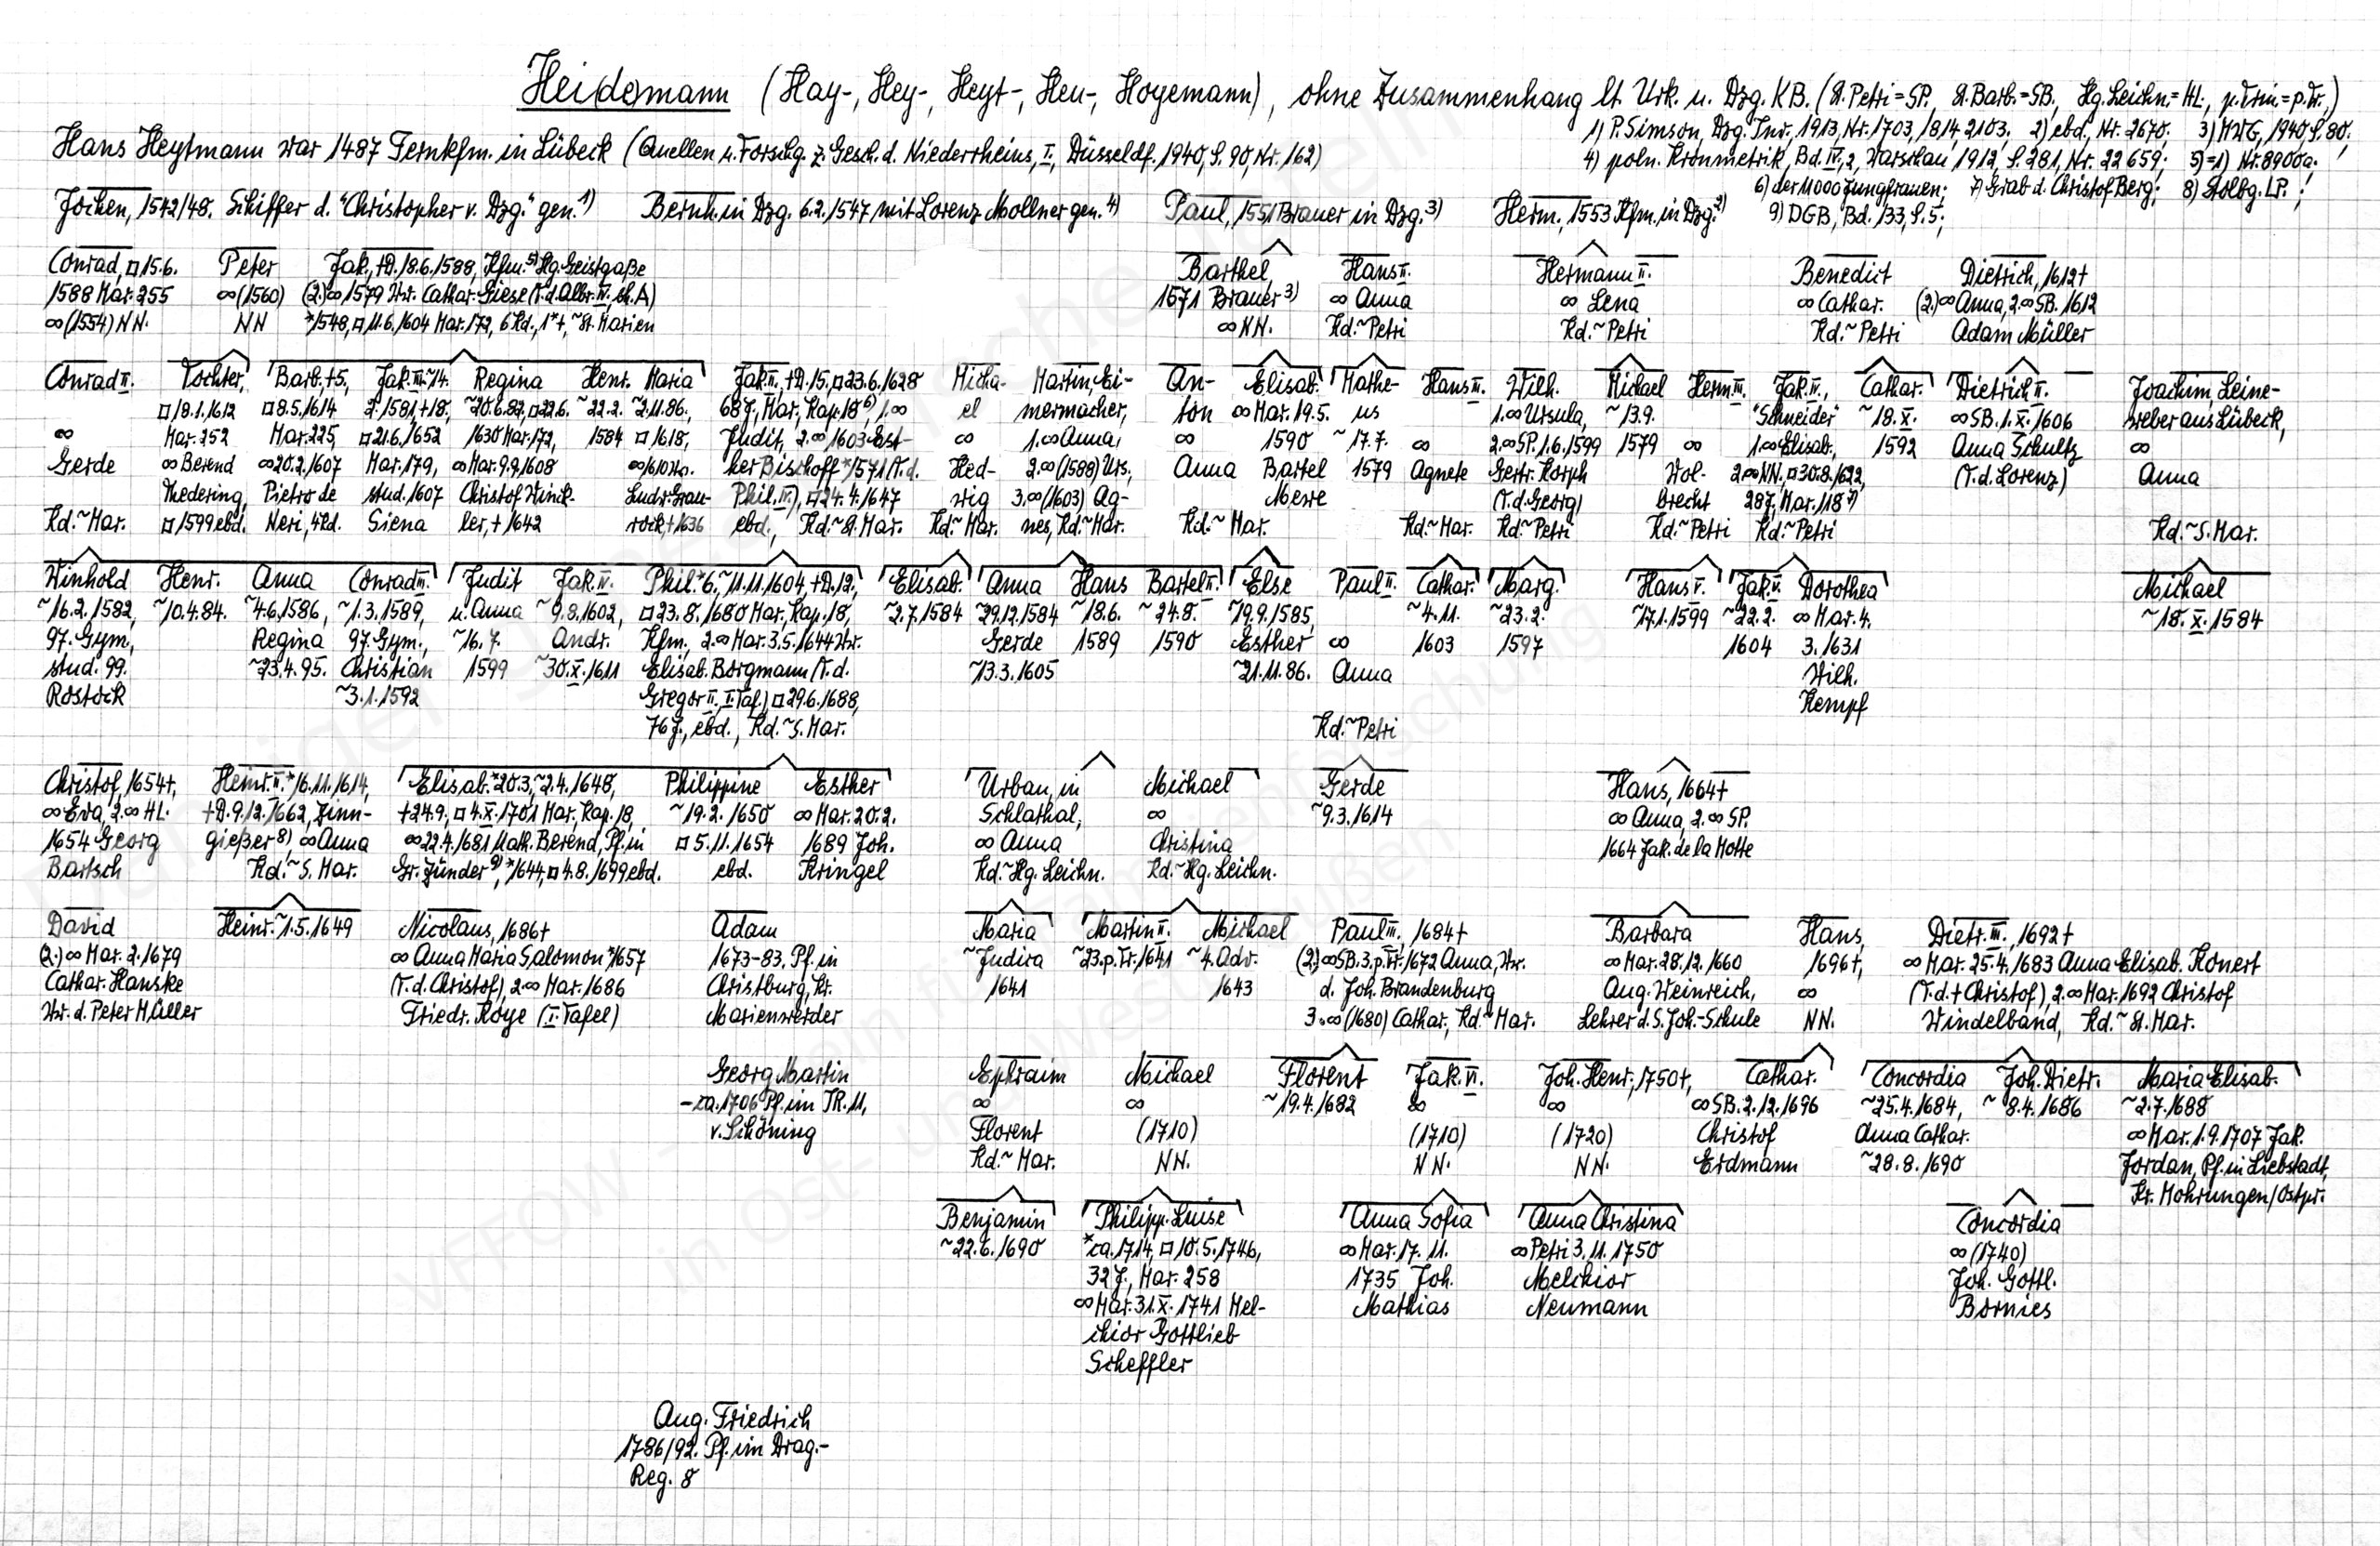 Heidemann (Hay-, Hey-, Heyt-, Heu-, Hoyemann), ohne Zusammenhang lt. Urk. u. Dzg. KB. (St. Petri=SP. St. Barb.=SB, Hg. Leichn.=HL, p. Trin.=p.Tr.)
1) P. Simson, Dzg. Inv., 1913, Nr. 1703, 1814, 2103. 2) ebd., Nr. 2670; 3) MWG, 1940, S. 80;
Hans Heytmann war 1487 Fernkfm. in Lübeck (Quellen u. Forschg. z. Gesch. d. Niederrheins, I, Düsseldf. 1940, S. 90, Nr. 162)
4) poln. Kronmetrik, Bd. IV, 2, Warschau 1912, S. 281, Nr. 22 659; 5)=1) Nr. 8900a.
6) der 11000 Jungfrauen; 7) Grab d. Christof Berg; 8) Stolbg. LP.;
9) DGB, Bd. 133, S. 5;
Jochen, 1542/48. Schiffer d. "Christopher v. Dzg." gen. 1) Bernh. in Dzg. 6.2.1547 mit Lorenz Mollner gen. 4) Paul, 1551 Brauer in Dzg. 3) Herm., 1553 Kfm. in Dzg. 2)
Conrad, □ 15.6. Peter Jak., +D. 18.6.1588, Kfm. 5) Hg. Geistgaße Barthel, Hans II. Hermann II. Benedict Dietrich, 1612+
1588 Mar. 255 ∞ (1560) (2.) ∞ 1579 Wwr. Cathar. Giese (T. d. Albr. IV, ch. A) 1571 Brauer 3) ∞ Anna ∞ Lena ∞ Cathar. (2.) ∞ Anna, 2. ∞ SB. 1612
∞ (1554) NN. NN *1548, □ 11.6.1604 Mar. 172, 6 Kd., 1*+, ~St. Marien ∞ NN. Kd. ~ Petri Kd. ~ Petri Kd. ~ Petri Adam Müller
Conrad II. Tochter, Barb. +5, Jak. III. ~14. Regina Henr. Maria Jak. II, +D. 15, □ 23.6.1628 Micha- Martin, Ei- An- Elisab. Mathe- Hans III. Wilh. Michael Herm. III. Jak. IV., Cathar. Dietrich II. Joachim, Leine-
□ 18.1.1612 □ 8.5.1614 2.1581 +18, ~20.6.82, □ 22.6. ~22.2. ~2.11.86, 68 J., Mar., Kap. 18 6), 1. ∞ el mermacher, ton ∞ Mar. 19.5. us 1. ∞ Ursula, ~13.9. "Schneider" ~18.X. ∞ SB. 1.X.1606 weber aus Lübeck,
∞ Mar. 252 Mar. 225, □ 21.6.1652 1630 Mar. 172, 1584 □ 1618, Judit, 2. ∞ 1603 Est- ∞ 1. ∞ Anna, ∞ 1590 ~17.7. ∞ 2. ∞ SP. 1.6.1599 1579 ∞ 1. ∞ Elisab., 1592 Anna Schultz ∞
Gerde ∞ Berend ∞ 20.2.1607 Mar. 179, ∞ Mar. 9.9.1608 ∞ 1610 Wo. her Bischoff *1571 (T. d. Hed- 2. ∞ (1588) Urs., Anna Bartel 1579 Agnete Gertr. Korph Wol- 2. ∞ NN. □ 30.8.1622, (T. d. Lorenz) Anna
Thedering, Pietro de stud. 1607 Christof Winck- Ludw. Grau- Phil. IV.), □ 24.4.1647 wig 3. ∞ (1603) Ag- Mewe (T. d. Georg) brecht 28 J., Mar. 118 7)
Kd. ~ Mar. □ 1599 ebd. Neri, 4 Kd. Siena ler, + 1642 rock, + 1636 ebd., Kd. ~ St. Mar. Kd. ~ Mar. nes, Kd. ~ Mar. Kd. ~ Mar. Kd. ~ Mar. Kd. ~ Petri Kd. ~ Petri Kd. ~ Petri Kd. ~ S. Mar.
Winhold Henr. Anna Conrad III. Judit Jak. IV. Phil. *6. ~11.11.1604, +D. 12, Elisab. Anna Hans Bartel II. Else Paul II. Cathar. Marg. Hans V. Jak. V. Dorothea Michael
~16.2.1582, ~10.4.84. ~4.6.1586, ~1.3.1589, u. Anna ~9.8.1602, □ 23.8.1680 Mar., Kap. 18, ~2.7.1584 ~29.12.1584 ~18.6. ~24.8. ~19.9.1585, ~4.11. ~23.2. ~17.1.1599 ~22.2. ∞ Mar. 4. ~18.X.1584
97. Gym., Regina 97. Gym., ~16.7. Andr. Kfm., 2. ∞ Mar. 3.5.1644 Wwr. Gerde 1589 1590 Esther ∞ 1603 1597 1604 3.1631
stud. 99. ~23.4.95. Christian 1599 ~30.X.1611 Elisab. Borgmann (T. d. ~13.3.1605 ~21.11.86. Anna Wilh.
Rostock ~3.1.1592 Gregor II, I. Taf.) □ 29.6.1688, Kempf
76 J., ebd., Kd. ~ S. Mar. Kd. ~ Petri
Christof, 1654+, Heinr. II. *16.11.1614, Elisab. *20.3, ~2.4.1648, Philippine Esther Urban, in Michael Gerde Hans, 1664+
∞ Eva, 2. ∞ HL. +D. 9.12.1662, Zinn- +24.9, □ 4.X.1701 Mar., Kap. 18, ~19.2.1650 ∞ Mar. 20.2. Schlathal, ∞ ~9.3.1614 ∞ Anna, 2. ∞ SP.
1654 Georg gießer 8), ∞ Anna ∞ 22.4.1681 Math. Berend, Pf. in □ 5.11.1654 1689 Joh. ∞ Anna Christina 1664 Jak. de la Motte
Bartsch Kd. ~ S. Mar. Gr. Zünder 9), *1644, □ 4.8.1699 ebd. ebd. Kringel Kd. ~ Hg. Leichn. Kd. ~ Hg. Leichn.
David Heinr. ~1.5.1649 Nicolaus, 1686+ Adam Maria Martin II. Michael Paul III., 1684+ Barbara Hans, Dietr. III., 1692+
(2.) ∞ Mar. 2.1679 ∞ Anna Maria Salomon *1657 1673-83. Pf. in ~Judica ~23. p. Tr. 1641 ~4. Adv. (2.) ∞ SB. 3. p. Tr. 1672 Anna, Ww. ∞ Mar. 28.12.1660 1696+, ∞ Mar. 25.4.1683 Anna Elisab. Konert
Cathar. Hanske (T. d. Christof), 2. ∞ Mar. 1686 Christburg, Kr. 1641 1643 d. Joh. Brandenburg Aug. Weinreich, ∞ (T. d. + Christof), 2. ∞ Mar. 1692 Christof
Wr. d. Peter Müller Friedr. Koye (I. Tafel) Marienwerder 3. ∞ (1680) Cathar., Kd. ~ Mar. Lehrer d. S. Joh.-Schule NN. Windelband, Kd. ~ St. Mar.
Georg Martin Ephraim Michael Florent Jak. VI. Joh. Henr., 1750+, Cathar. Concordia Joh. Dietr. Maria Elisab.
- ca. 1706 Pf. im IR. 11, ∞ ∞ ~19.4.1682 ∞ ∞ ∞ SB. 2.12.1696 ~25.4.1684, ~8.4.1686 ~2.7.1688
v. Schöning Florent (1710) (1710) (1720) Christof Anna Cathar. ∞ Mar. 1.9.1707 Jak.
Kd. ~ Mar. NN. NN. NN. Erdmann ~28.8.1690 Jordan, Pf. in Liebstadt,
Kr. Mohrungen/Ostpr.
Benjamin Philipp. Luise Anna Sofia Anna Christina Concordia
~22.6.1690 *ca. 1714, □ 10.5.1746, ∞ Mar. 17.11. ∞ Petri 3.11.1750 ∞ (1740)
32 J., Mar. 258 1735 Joh. Melchior Joh. Gottl.
∞ Mar. 31.X.1741 Mel- Mathias Neumann Bornies
chior Gottlieb
Scheffler
Aug. Friedrich
1786/92. Pf. im Drag.-
Reg. 8